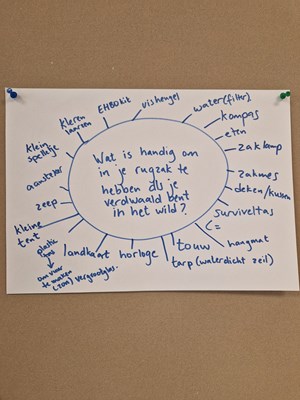 Wat is handig om
in je rugzak te
hebben als je
verdwaald bent
in het wild?
EHBOkit
vishengel
water(filter)
kompas
eten
zaklamp
zakmes
deken/kussen
surviveltas
hangmat
touw
tarp (waterdicht zeil)
horloge
landkaart
vergrootglas.
plastic
om vuur
te maken
(zon)
kleine
tent
zeep
aansteker
klein
spelletje
kleren
laarsen